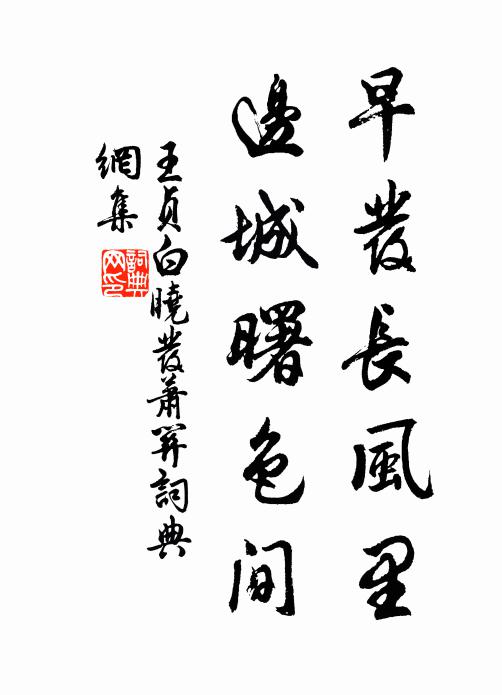 早發長風里
邊城曙色間
王貞白曉發蕭關詞典
網集
詞典
网印